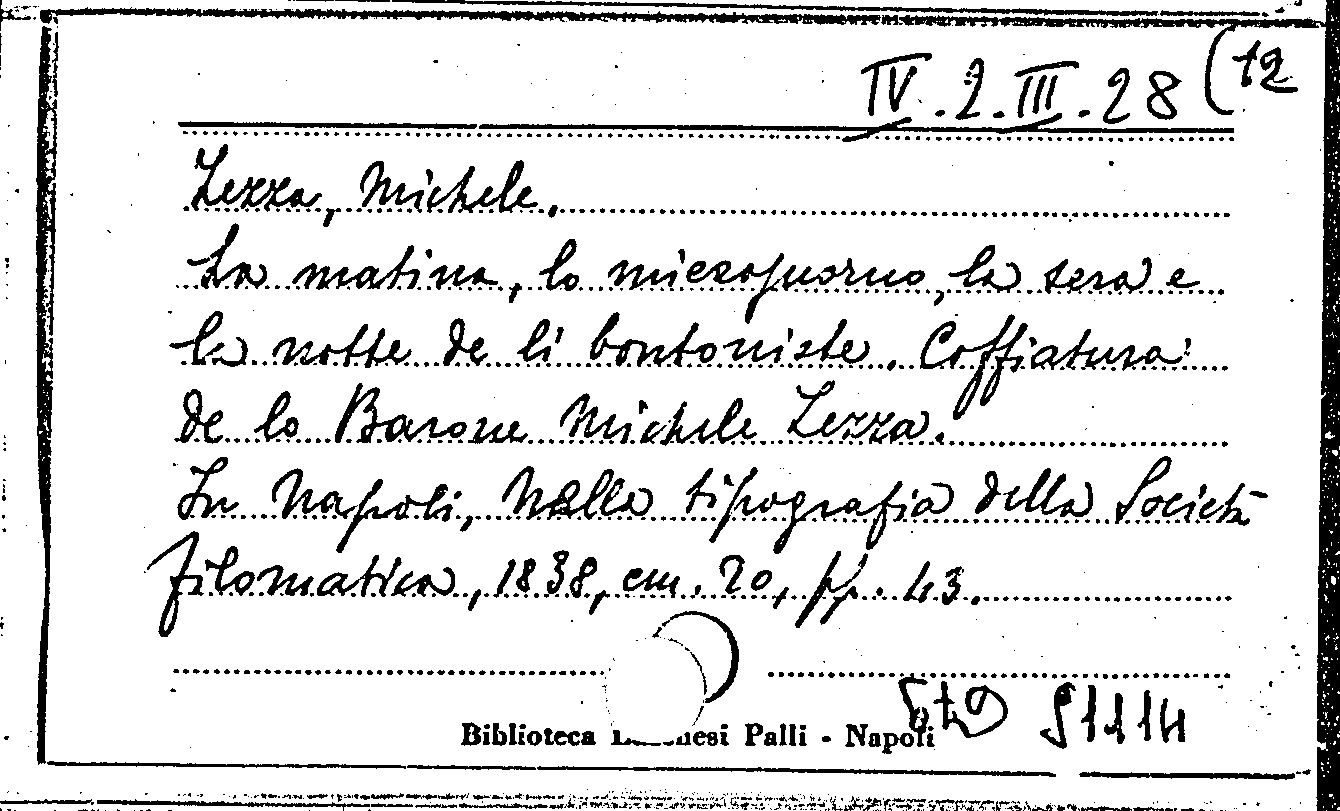 IV.2.III.28 (12
Zezza, Michele.
La matina, lo miezojuorno, la sera e
la notte de li bontoniste. Coffiatura
de lo Barone Michele Zezza.
In Napoli, Nella tipografia della Società
filomatica, 1838, cm. 20, pp. 43.
51114
Biblioteca Palli - Napoli